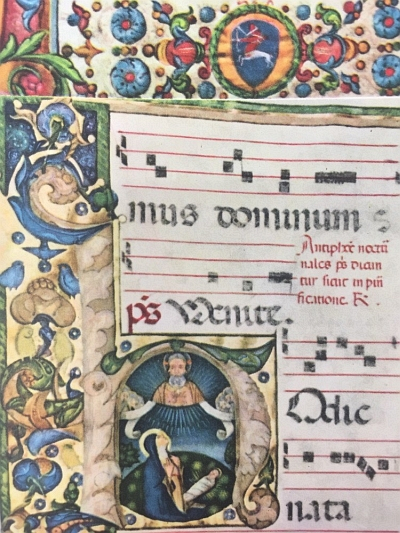 mus dominum
Antiphæ noctu
nales ps dican
tur sicut in puri
ficatione. R.
ps Venite.
Odie
nata